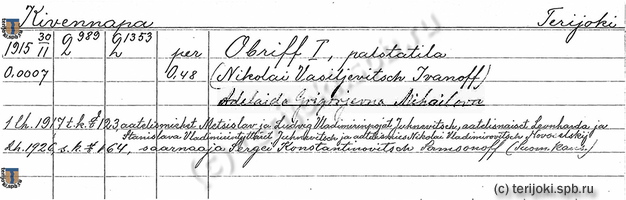 Kivennapa Terijoki
1915 30/11 2 989 2 1353 per Obriff I, palstatila
0.0007 0.48 (Nikolai Vasiljevitsch Ivanoff)
Adelaida Grigorjevna Mihailova
1 lk. 1917 t.k. § 123, aatelismiehet Metsislav ja Ludvig Vladimirinpojat Juhnevitsch, aatelisnaiset Leonharda ja
Stanislava Vladimirintyttäret Juhnevitsch ja aatelismies Nikolai Vladimirovitsch Novoselskij
2 lk. 1926, s.k. § 164, saarnaaja Sergei Konstantinovitsch Samsonoff (Suom. kans.)
terijoki.spb.ru
(c) terijoki.spb.ru